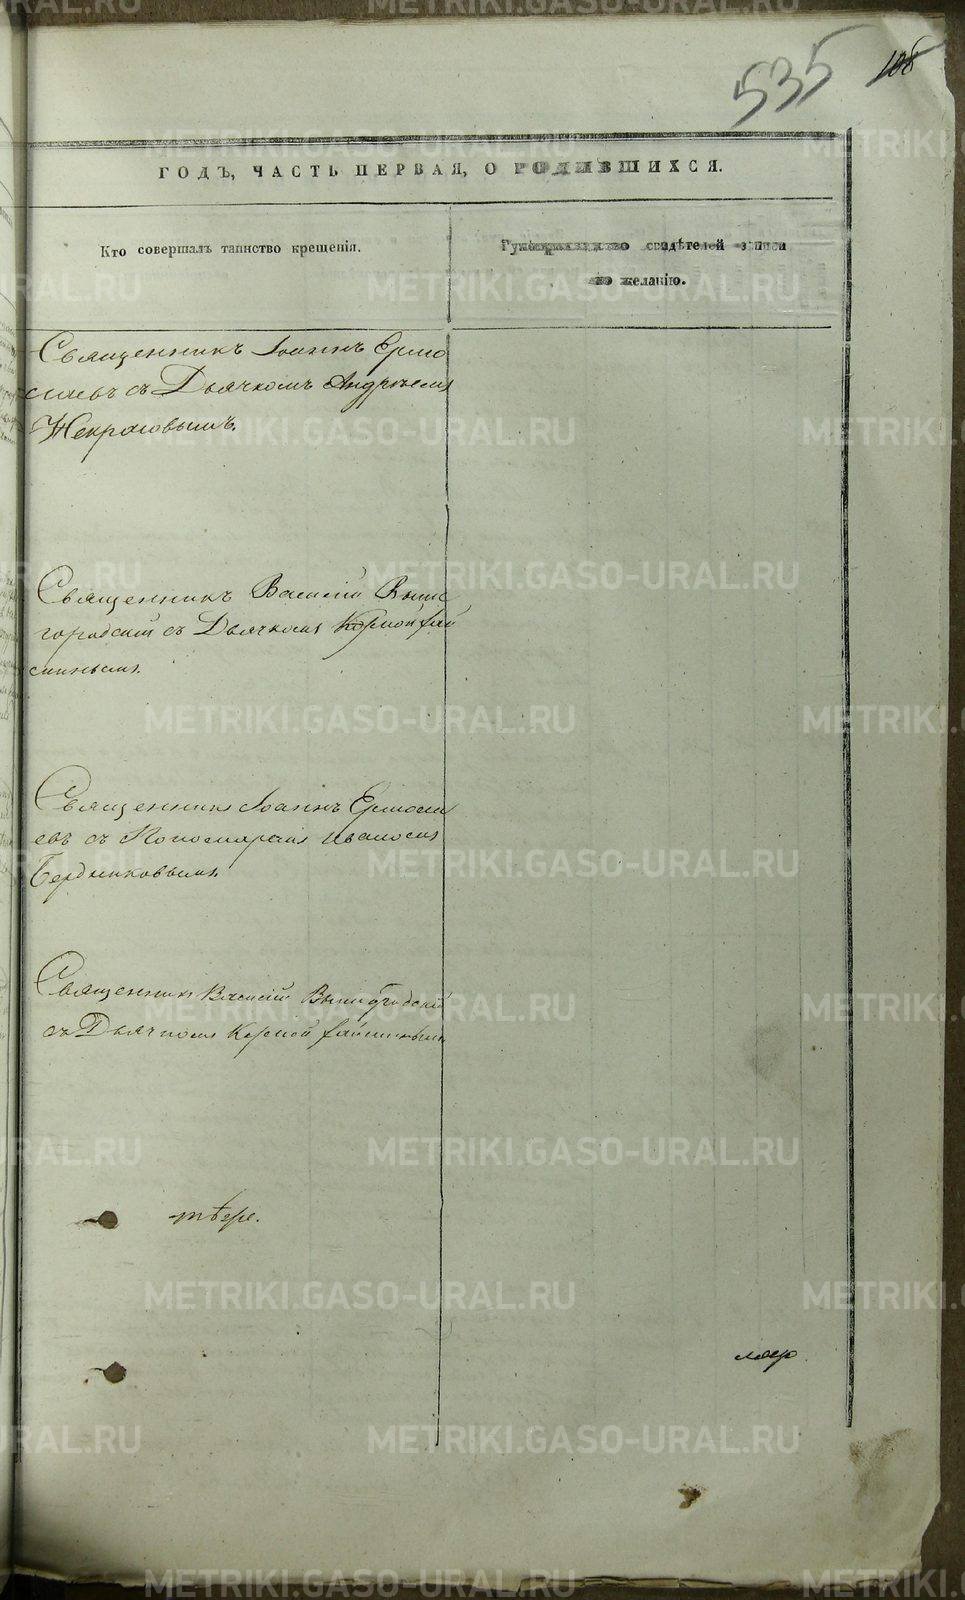 535
108
ГОДЪ, ЧАСТЬ ПЕРВАЯ, О РОДИВШИХСЯ.
Кто совершалъ таинство крещенія.
Рукоприкладство свидѣтелей записи
по желанію.
Священникъ Іоаннъ Ермо
лаевъ съ Дьячкомъ Андреемъ
Некрасовымъ
Священникъ Василій Выше
городскій съ Дьячкомъ
Священникъ Іоаннъ Ермола
евъ съ Пономаремъ Иваномъ
Бердниковымъ
Священникъ Василій Вышегородскій
съ Дьячкомъ
METRIKI.GASO-URAL.RU